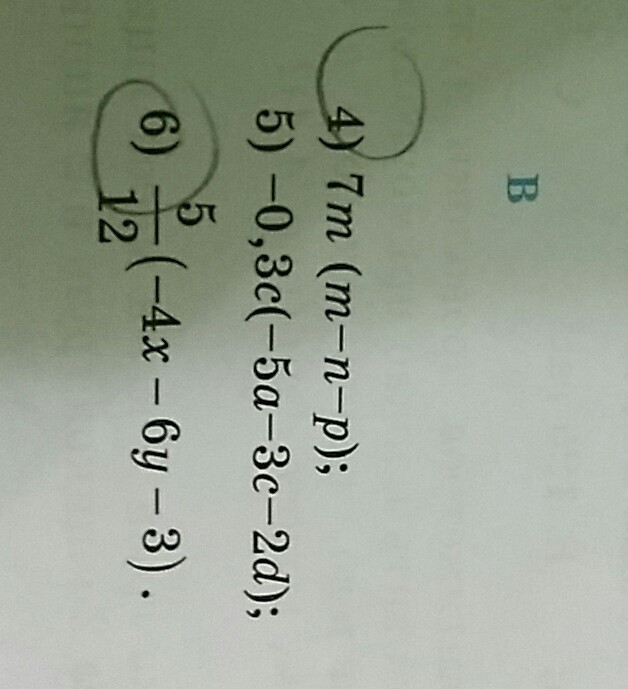 B
4) 7m (m–n–p);
5) –0,3c(–5a–3c–2d);
6) 5/12 (–4x – 6y – 3) .